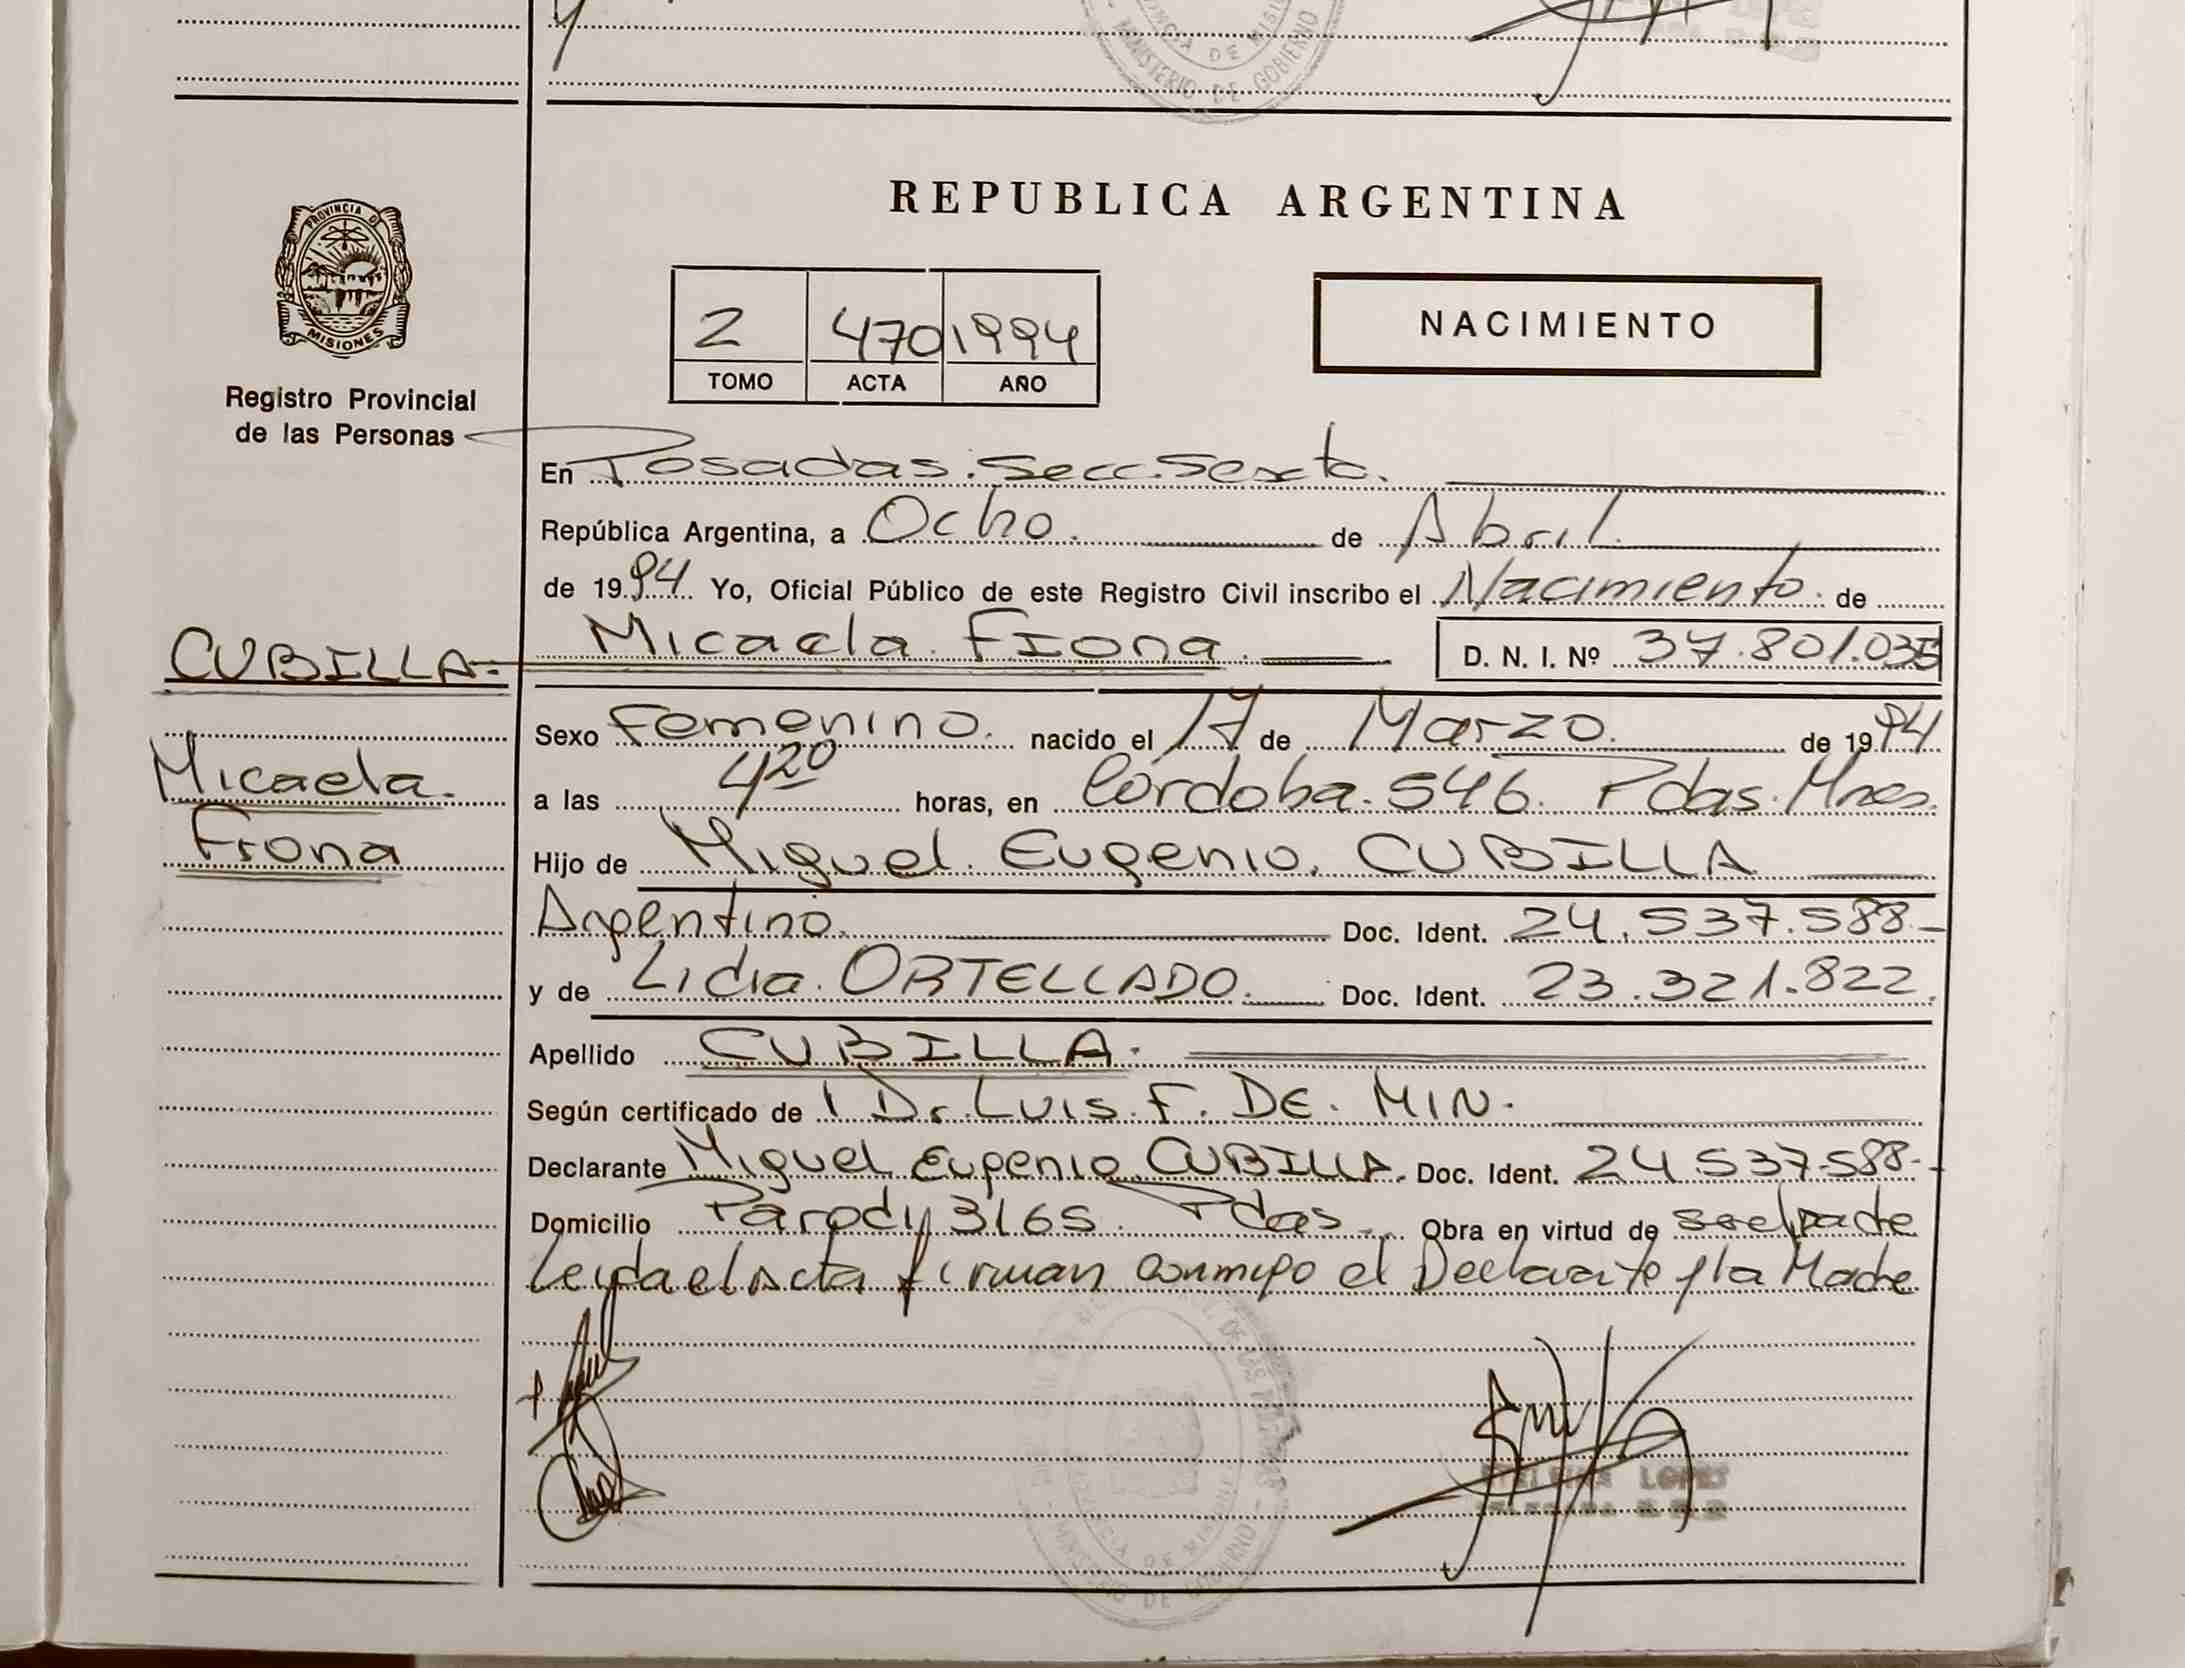 MINISTERIO DE GOBIERNO
REPUBLICA ARGENTINA
PROVINCIA D
MISIONES
Registro Provincial
de las Personas
2 470 1994
TOMO ACTA AÑO
NACIMIENTO
En Posadas. Secc. Sexta.
República Argentina, a Ocho. de Abril
de 1994 Yo, Oficial Público de este Registro Civil inscribo el Nacimiento. de
CUBILLA- Micaela. Fiona. D. N. I. Nº 37.801.035
Sexo Femenino. nacido el 17 de Marzo. de 1994
Micaela. a las 4 20 horas, en Córdoba. 546. Pdas. Mnes.
Fiona Hijo de Miguel. Eugenio. CUBILLA
Argentino. Doc. Ident. 24.537.588-
y de Lidia. ORTELLADO. Doc. Ident. 23.321.822.
Apellido CUBILLA.
Según certificado de Dr. Luis. F. DE. MIN.
Declarante Miguel Eugenio CUBILLA. Doc. Ident. 24.537.588-
Domicilio Parody 3165. Pdas. Obra en virtud de ser el padre
Leída el Acta firman conmigo el Declarante y la Madre
LOPEZ
MINISTERIO DE GOBIERNO